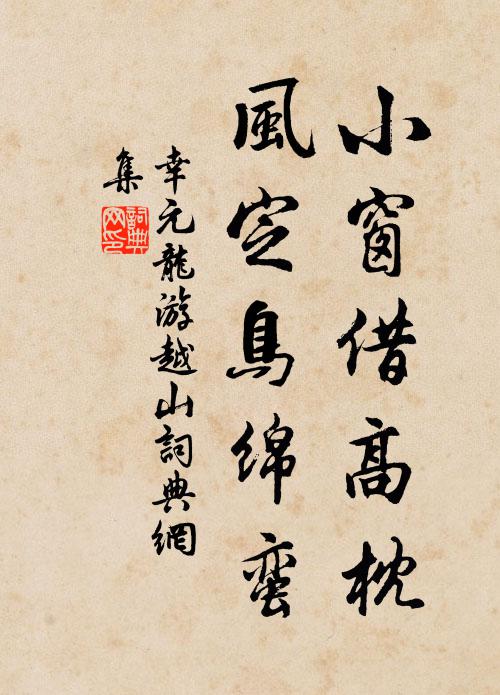 小窗借高枕
風定鳥綿蠻
幸元龍游越山詞典網
集
詞典網印